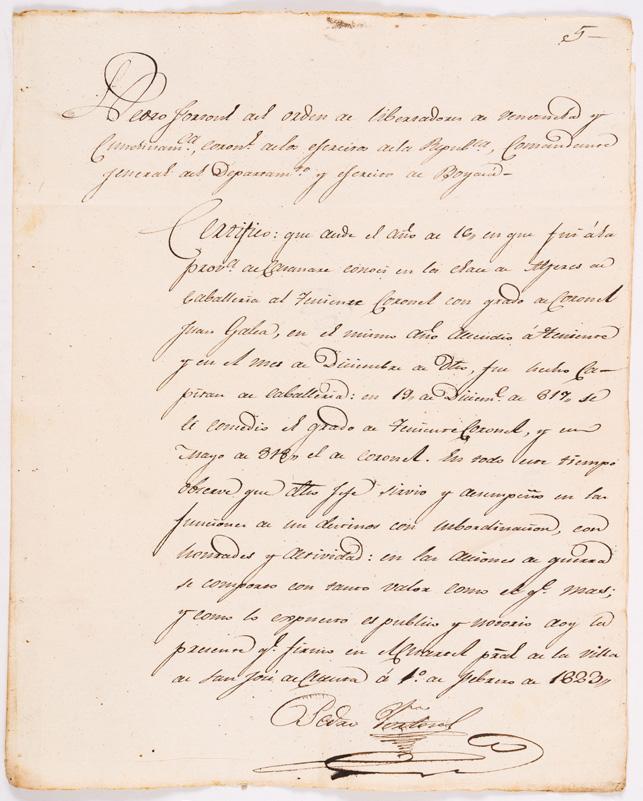 5—
Pedro Fortoul del orden de libertadores de Venezuela y
Cundinam.ca, coron.l de los esercitos de la Republ.ca, Comandante
general del Departam.to y esercito de Boyacá—
Certifico: que desde el año de 16,, en que fui á la
prov.a de Casanare conoci en la clace de Alferes de
Caballeria al Teniente Coronel con grado de Coronel
Juan Galea, en el mismo año acendio á teniente
y en el mes de Diciembre de dho, fue hecho Ca-
pitan de caballeria: en 19,, de Diciem.e de 817,, se
le consedio el grado de Teniente Coronel, y en
Mayo de 818,, el de coronel. En todo este tiempo
observé que dho Jefe sirvio y desempeño en las
funciones de sus destinos con subordinacion, con
honrades y actividad: en las acciones de guerra
se comporto con tanto valor como el q.e mas;
y como lo expuesto es publico y notorio doy la
presente q.e firmo en el Cuartel pral de la villa
de San José de Cúcuta á 1.º de Febrero de 1823,,
Pedro Fortoul